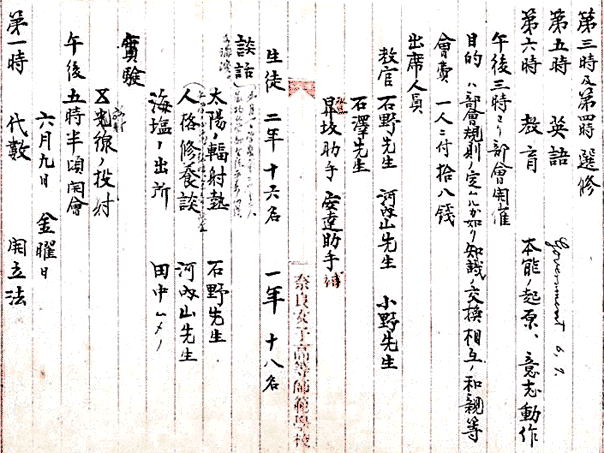 第三時及第四時 選修
第五時 英語 Government 6, 7.
第六時 教育 本能ノ起原、意志動作
午後三時ヨリ部會開催
目的ハ部會規則ノ定ムルガ如ク知識ノ交換相互ノ和親等
會費 一人ニ付拾八錢
出席人員
教官 石野先生 河内山先生 小野先生
石澤先生
昇坂助手 安達助手
奈良女子高等師範學校
生徒 二年 十六名 一年 十八名
談話
太陽ノ輻射熱 石野先生
人格修養談 河内山先生
海塩ノ出所 田中ムメノ
實驗
X光線ノ投射
午後五時半頃閉會
六月九日 金曜日
第一時 代數 開立法